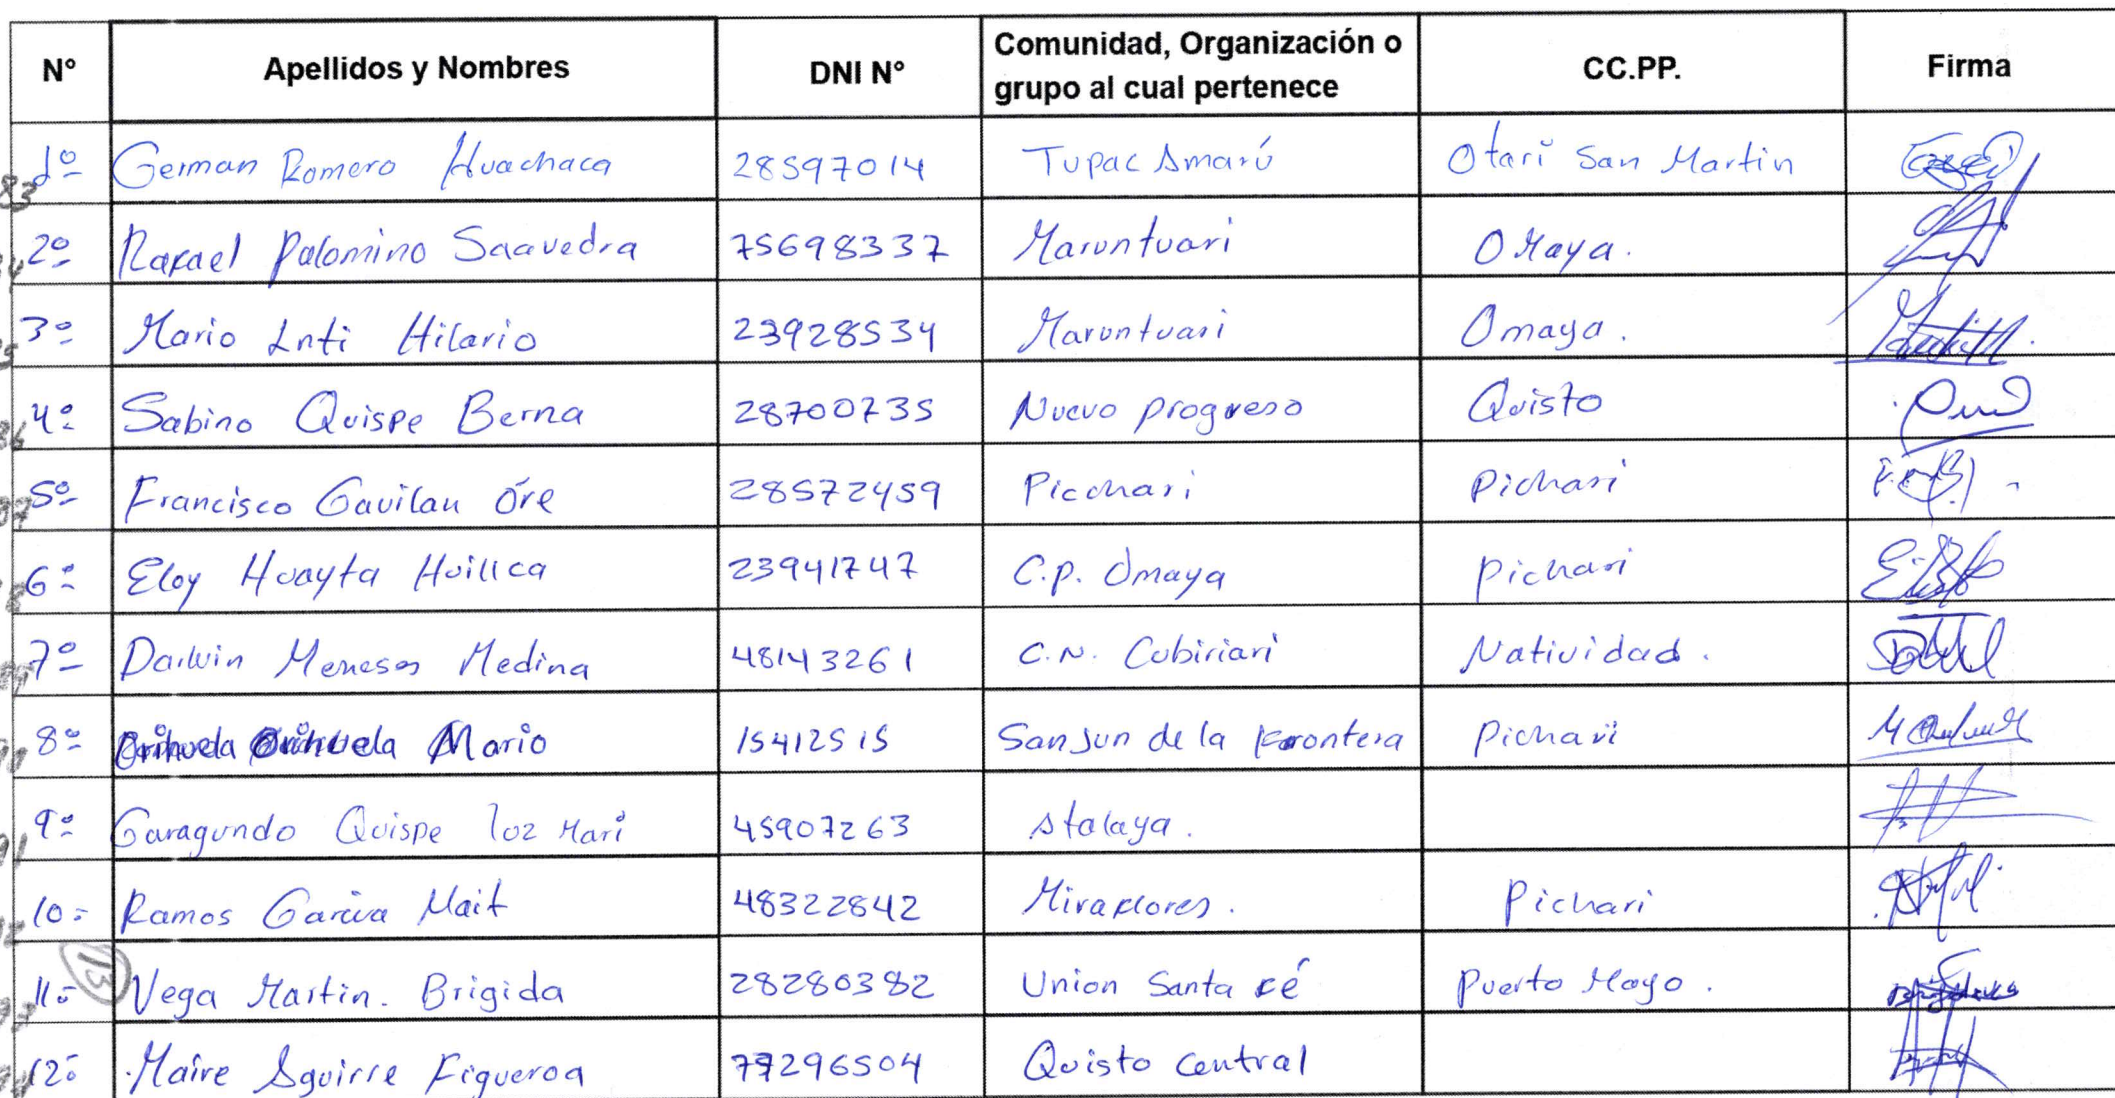 N° Apellidos y Nombres DNI N° Comunidad, Organización o grupo al cual pertenece CC.PP. Firma
1º German Romero Huachaca 28597014 Tupac Amarú Otari San Martin
2º Rafael Palomino Saavedra 75698337 Marontuari Omaya.
3º Mario Inti Hilario 23928534 Marontuari Omaya.
4º Sabino Quispe Berna 28700735 Nuevo progreso Quisto
5º Francisco Gavilan óre 28572459 Picchari Pichari
6º Eloy Huayta Huillca 23941747 C.p. Omaya pichari
7º Darwin Meneses Medina 48143261 C.N. Cubiriari Natividad.
8º Orihuela Orihuela Mario 15412515 San Jun de la Frontera Pichari
9º Garagundo Quispe luz Mari 45907263 Atalaya.
10- Ramos Garcia Mait 48322842 Miraflores. Pichari
11- Vega Martin. Brigida 28280382 Union Santa fé Puerto Mayo.
12- Maire Aguirre Figueroa 77296504 Quisto Central